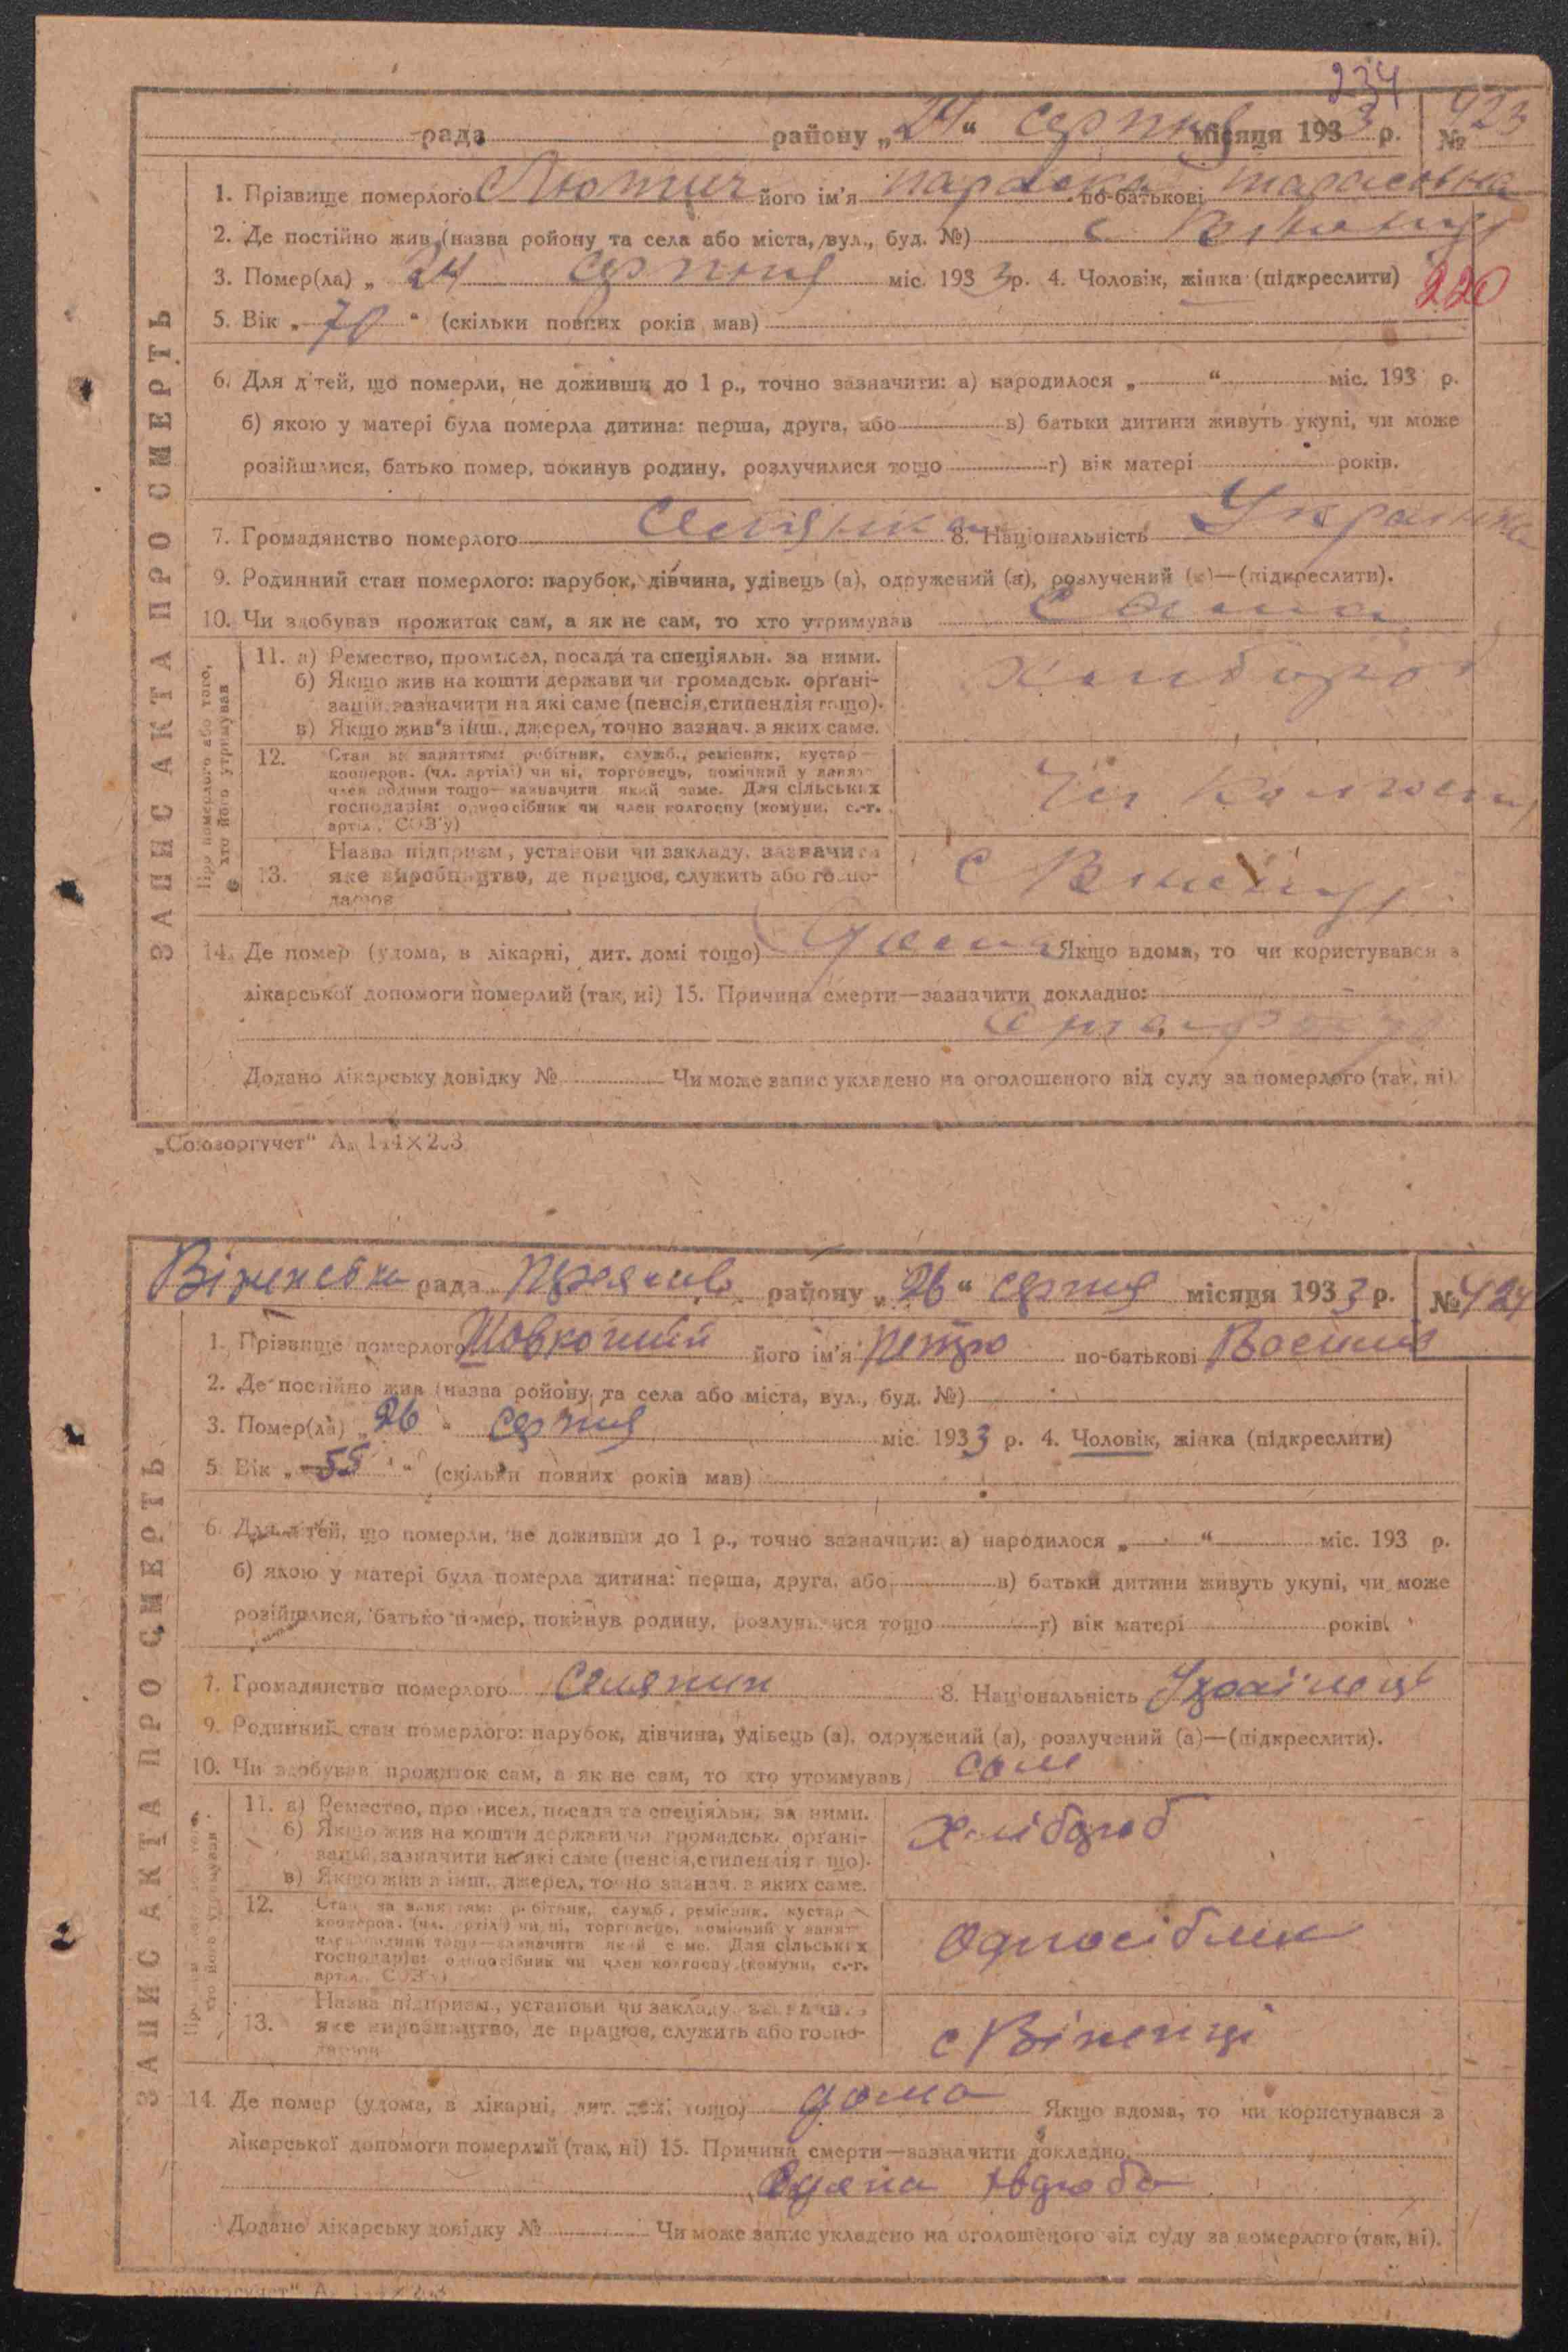 234
рада району „24“ серпня місяця 1933 р. № 423
ЗАПИС АКТА ПРО СМЕРТЬ
1. Прізвище померлого Лютич його ім'я параска по-батькові тарасовна
2. Де постійно жив (назва ройону та села або міста, вул., буд. №) с
3. Помер(ла) „ 24 серпня міс. 1933 р. 4. Чоловік, жінка (підкреслити)
220
5. Вік „ 70 “ (скільки повних років мав)
6. Для дітей, що померли, не доживши до 1 р., точно зазначити: а) народилося „ “ міс. 193 р.
б) якою у матері була померла дитина: перша, друга, або в) батьки дитини живуть укупі, чи може
розійшлися, батько помер, покинув родину, розлучилися тощо г) вік матері років.
7. Громадянство померлого Селянка 8. Національність Українка
9. Родинний стан померлого: парубок, дівчина, удівець (а), одружений (а), розлучений (а)—(підкреслити).
10. Чи здобував прожиток сам, а як не сам, то хто утримував Сама
Про померлого або того, хто його утримував
11. а) Ремество, промисел, посада та спеціяльн. за ними.
б) Якщо жив на кошти держави чи громадськ. орґані-
зацій, зазначити на які саме (пенсія, стипендія тощо).
в) Якщо жив з інш., джерел, точно зазнач. з яких саме.
12. Стан за заняттям: робітник, служб., ремісник, кустар—
кооперов. (чл. артілі) чи ні, торговець, помічний у занят-
член родини тощо—зазначити який саме. Для сільських
господарів: одноосібник чи член колгоспу (комуни, с.-г.
артіл., СОЗ'у)
Назва підприєм., установи чи закладу, зазначити
13. яке виробництво, де працює, служить або госпо-
дарює
с
14. Де помер (удома, в лікарні, дит. домі тощо) Якщо вдома, то чи користувався з
лікарської допомоги померлий (так, ні) 15. Причина смерти—зазначити докладно:
Додано лікарську довідку № Чи може запис укладено на оголошеного від суду за померлого (так, ні)
„Союзоргучет“
рада району „26“ серпня місяця 1933 р. № 424
ЗАПИС АКТА ПРО СМЕРТЬ
1. Прізвище померлого Шовкопий його ім'я Петро по-батькові
2. Де постійно жив (назва ройону та села або міста, вул., буд. №)
3. Помер(ла) „ 26 “ серпня міс. 1933 р. 4. Чоловік, жінка (підкреслити)
5. Вік „ 55 “ (скільки повних років мав)
6. Для дітей, що померли, не доживши до 1 р., точно зазначити: а) народилося „ “ міс. 193 р.
б) якою у матері була померла дитина: перша, друга, або в) батьки дитини живуть укупі, чи може
розійшлися, батько помер, покинув родину, розлучилися тощо г) вік матері років.
7. Громадянство померлого Селянин 8. Національність Українець
9. Родинний стан померлого: парубок, дівчина, удівець (а), одружений (а), розлучений (а)—(підкреслити).
10. Чи здобував прожиток сам, а як не сам, то хто утримував сам
11. а) Ремество, промисел, посада та спеціяльн. за ними.
б) Якщо жив на кошти держави чи громадськ. орґані-
зацій, зазначити на які саме (пенсія, стипендія тощо).
в) Якщо жив з інш., джерел, точно зазнач. з яких саме.
Хлібороб
12. Стан за заняттям: робітник, служб., ремісник, кустар
кооперов. (чл. артілі) чи ні, торговець, помічний у занят-
член родини тощо—зазначити який саме. Для сільських
господарів: одноосібник чи член колгоспу (комуни, с.-г.
артіл., СОЗ'у)
Одноосібник
Назва підприєм., установи чи закладу, зазначити
13. яке виробництво, де працює, служить або госпо-
дарює
с Віненці
14. Де помер (удома, в лікарні, дит. домі тощо) дома Якщо вдома, то чи користувався з
лікарської допомоги померлий (так, ні) 15. Причина смерти—зазначити докладно.
хвороба
Додано лікарську довідку № Чи може запис укладено на оголошеного від суду за померлого (так, ні).